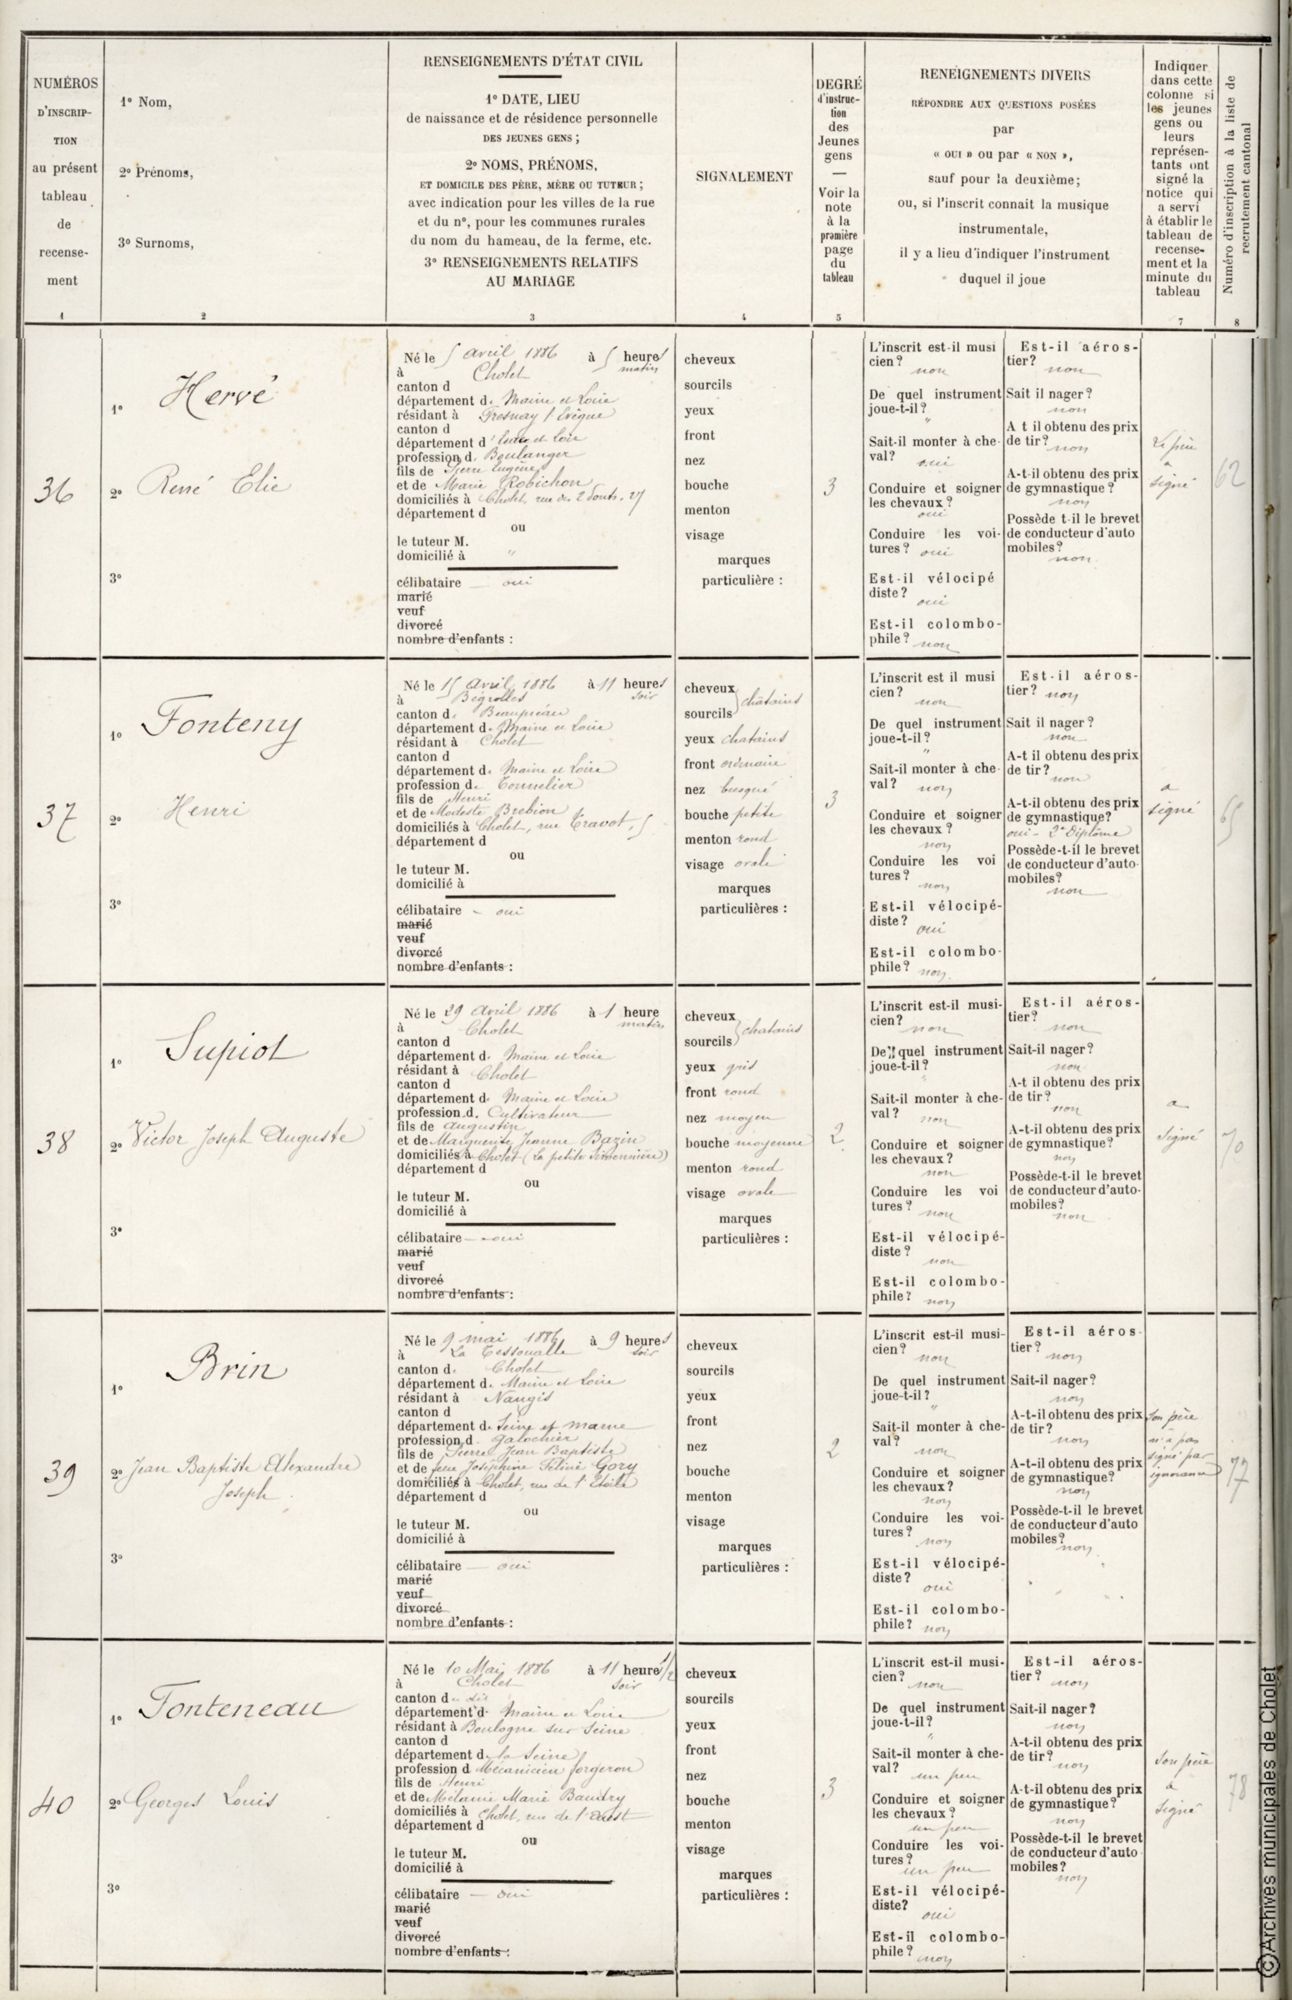 NUMÉROS
D'INSCRIP-
TION
au présent
tableau
de
recense-
ment
1
1º Nom,
2º Prénoms,
3º Surnoms,
2
RENSEIGNEMENTS D'ÉTAT CIVIL
1º DATE, LIEU
de naissance et de résidence personnelle
DES JEUNES GENS ;
2º NOMS, PRÉNOMS,
ET DOMICILE DES PÈRE, MÈRE OU TUTEUR ;
avec indication pour les villes de la rue
et du nº, pour les communes rurales
du nom du hameau, de la ferme, etc.
3º RENSEIGNEMENTS RELATIFS
AU MARIAGE
3
SIGNALEMENT
4
DEGRÉ
d'instruc-
tion
des
Jeunes
gens
Voir la
note
à la
première
page
du
tableau
5
RENEIGNEMENTS DIVERS
RÉPONDRE AUX QUESTIONS POSÉES
par
« OUI » ou par « NON »,
sauf pour la deuxième ;
ou, si l'inscrit connait la musique
instrumentale,
il y a lieu d'indiquer l'instrument
duquel il joue
Indiquer
dans cette
colonne si
les jeunes
gens ou
leurs
représen-
tants ont
signé la
notice qui
a servi
à établir le
tableau de
recense-
ment et la
minute du
tableau
7
Numéro d'inscription à la liste de
recrutement cantonal
8
36
1º Hervé
2º René Elie
3º
Né le 5 avril 1886 à 5 heures
matin
à Cholet
canton d
département d. Maine et Loire
résidant à Fresnay l'Evêque
canton d
département d'Eure et Loir
profession d. Boulanger
fils de Pierre Eugène
et de Marie Robichon
domiciliés à Cholet, rue des 2 Ponts, 27
département d
ou
le tuteur M.
domicilié à "
célibataire oui
marié
veuf
divorcé
nombre d'enfants :
cheveux
sourcils
yeux
front
nez
bouche
menton
visage
marques
particulière :
3
L'inscrit est-il musi
cien ? non
De quel instrument
joue-t-il ? "
Sait-il monter à che-
val ? oui
Conduire et soigner
les chevaux ? oui
Conduire les voi-
tures ? oui
Est-il vélocipé
diste ? oui
Est-il colombo-
phile ? non
Est-il aéros-
tier ? non
Sait il nager ?
non
A t il obtenu des prix
de tir ? non
A-t-il obtenu des prix
de gymnastique ?
non
Possède t-il le brevet
de conducteur d'auto
mobiles ? non
Le père
a
signé
62
37
1º Fonteny
2º Henri
3º
Né le 15 avril 1886 à 11 heures
soir
à Bégrolles
canton d. Beaupréau
département d. Maine et Loire
résidant à Cholet
canton d
département d. Maine et Loire
profession de Tonnelier
fils de Henri
et de Modeste Brebion
domiciliés à Cholet, rue Travot, 5
département d
ou
le tuteur M.
domicilié à
célibataire oui
marié
veuf
divorcé
nombre d'enfants :
cheveux
sourcils châtains
yeux chatains
front ordinaire
nez busqué
bouche petite
menton rond
visage ovale
marques
particulières :
3
L'inscrit est il musi
cien ? non
De quel instrument
joue-t-il ? "
Sait-il monter à che-
val ? non
Conduire et soigner
les chevaux ?
non
Conduire les voi
tures ? non
Est-il vélocipé-
diste ? oui
Est-il colombo-
phile ? non
Est-il aéros-
tier ? non
Sait il nager ?
non
A-t il obtenu des prix
de tir ? non
A-t-il obtenu des prix
de gymnastique ?
oui - 2e Diplôme
Possède-t-il le brevet
de conducteur d'auto-
mobiles ?
non
a
signé
65
38
1º Supiot
2º Victor Joseph Auguste
3º
Né le 29 avril 1886 à 1 heure
matin
à Cholet
canton d
département d. Maine et Loire
résidant à Cholet
canton d
département d. Maine et Loire
profession d. Cultivateur
fils de Augustin
et de Marguerite Jeanne Bazin
domiciliés à Cholet (la petite Simonnière)
département d
ou
le tuteur M.
domicilié à
célibataire oui
marié
veuf
divorcé
nombre d'enfants :
cheveux
sourcils chatains
yeux gris
front rond
nez moyen
bouche moyenne
menton rond
visage ovale
marques
particulières :
2
L'inscrit est-il musi-
cien ? non
De quel instrument
joue-t-il ?
Sait-il monter à che-
val ? non
Conduire et soigner
les chevaux ?
non
Conduire les voi
tures ? non
Est-il vélocipé-
diste ? non
Est-il colombo-
phile ? non
Est-il aéros-
tier ? non
Sait-il nager ?
non
A-t il obtenu des prix
de tir ? non
A-t-il obtenu des prix
de gymnastique ?
non
Possède-t-il le brevet
de conducteur d'auto-
mobiles ? non
a
signé
70
39
1º Brin
2º Jean Baptiste Alexandre
Joseph
3º
Né le 9 mai 1886 à 9 heures
soir
à La Tessoualle
canton d. Cholet
département d. Maine et Loire
résidant à Nangis
canton d
département de Seine et Marne
profession d. galochier
fils de Pierre Jean Baptiste
et de feue Joséphine Féline Gory
domiciliés à Cholet, rue de l'Etoile
département d
ou
le tuteur M.
domicilié à
célibataire oui
marié
veuf
divorcé
nombre d'enfants :
cheveux
sourcils
yeux
front
nez
bouche
menton
visage
marques
particulières :
2
L'inscrit est-il musi-
cien ? non
De quel instrument
joue-t-il ? "
Sait-il monter à che-
val ? non
Conduire et soigner
les chevaux ?
non
Conduire les voi-
tures ? non
Est-il vélocipé-
diste ? oui
Est-il colombo-
phile ? non
Est-il aéros-
tier ? non
Sait-il nager ?
non
A-t-il obtenu des prix
de tir ? non
A-t-il obtenu des prix
de gymnastique ?
non
Possède-t-il le brevet
de conducteur d'auto
mobiles ? non
Son père
n'a pas
signé par
ignorance
77
40
1º Fonteneau
2º Georges Louis
3º
Né le 10 Mai 1886 à 11 heures 1/2
soir
à Cholet
canton d
département d. Maine et Loire
résidant à Boulogne sur Seine
canton d
département de la Seine
profession d Mécanicien forgeron
fils de Henri
et de Mélanie Marie Baudry
domiciliés à Cholet, rue de l'Ouest
département d
ou
le tuteur M.
domicilié à
célibataire oui
marié
veuf
divorcé
nombre d'enfants :
cheveux
sourcils
yeux
front
nez
bouche
menton
visage
marques
particulières :
3
L'inscrit est-il musi-
cien ? non
De quel instrument
joue-t-il ? "
Sait-il monter à che-
val ? un peu
Conduire et soigner
les chevaux ?
un peu
Conduire les voi-
tures ? un peu
Est-il vélocipé-
diste ?
oui
Est-il colombo-
phile ? non
Est-il aéros-
tier ? non
Sait-il nager ?
non
A-t-il obtenu des prix
de tir ? non
A-t-il obtenu des prix
de gymnastique ?
non
Possède-t-il le brevet
de conducteur d'auto
mobiles ?
non
Son père
a
signé
78
©Archives municipales de Cholet